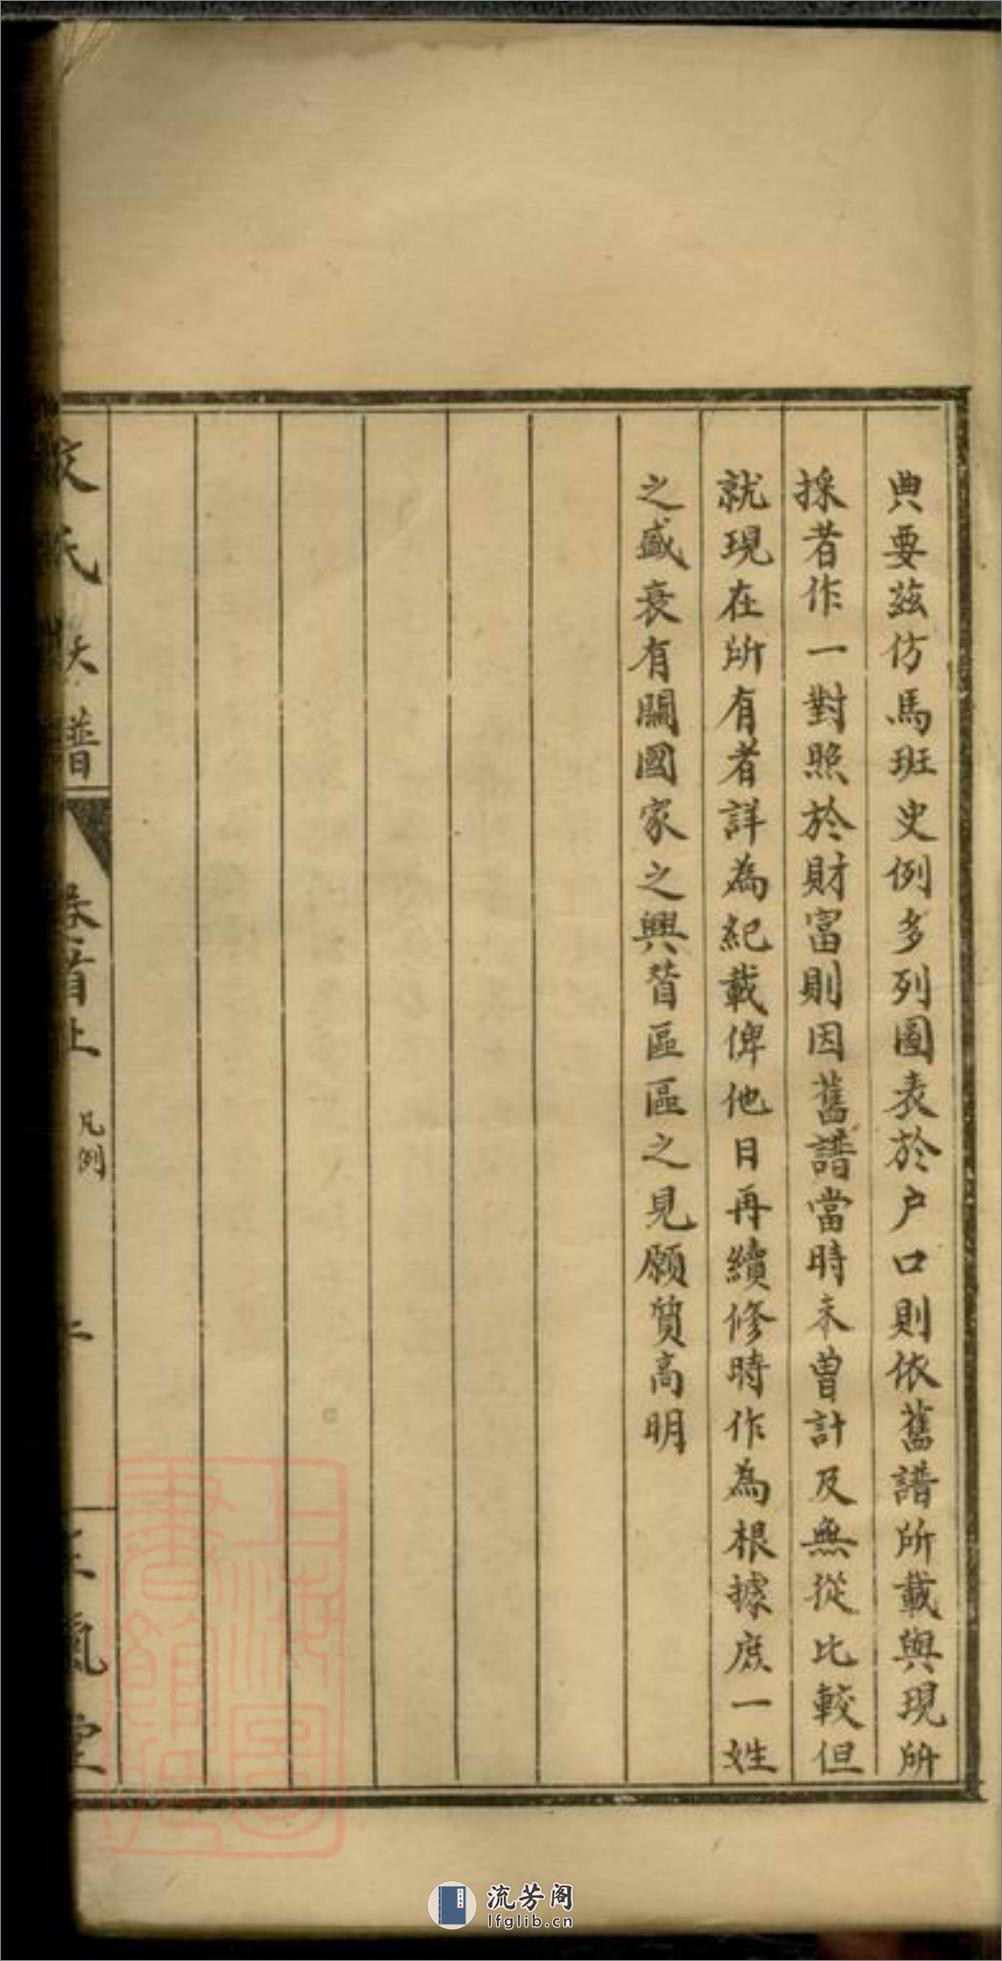 典要茲仿馬班史例多列圖表於户口則依舊譜所載與現所
採者作一對照於財富則因舊譜當時未曾計及無從比較但
就現在所有者詳為紀載俾他日再續修時作為根據庶一姓
之盛衰有關國家之興替區區之見願質高明
氏族譜
卷首上
凡例
氣堂
上海圖書館藏
流芳阁
lfglib.cn